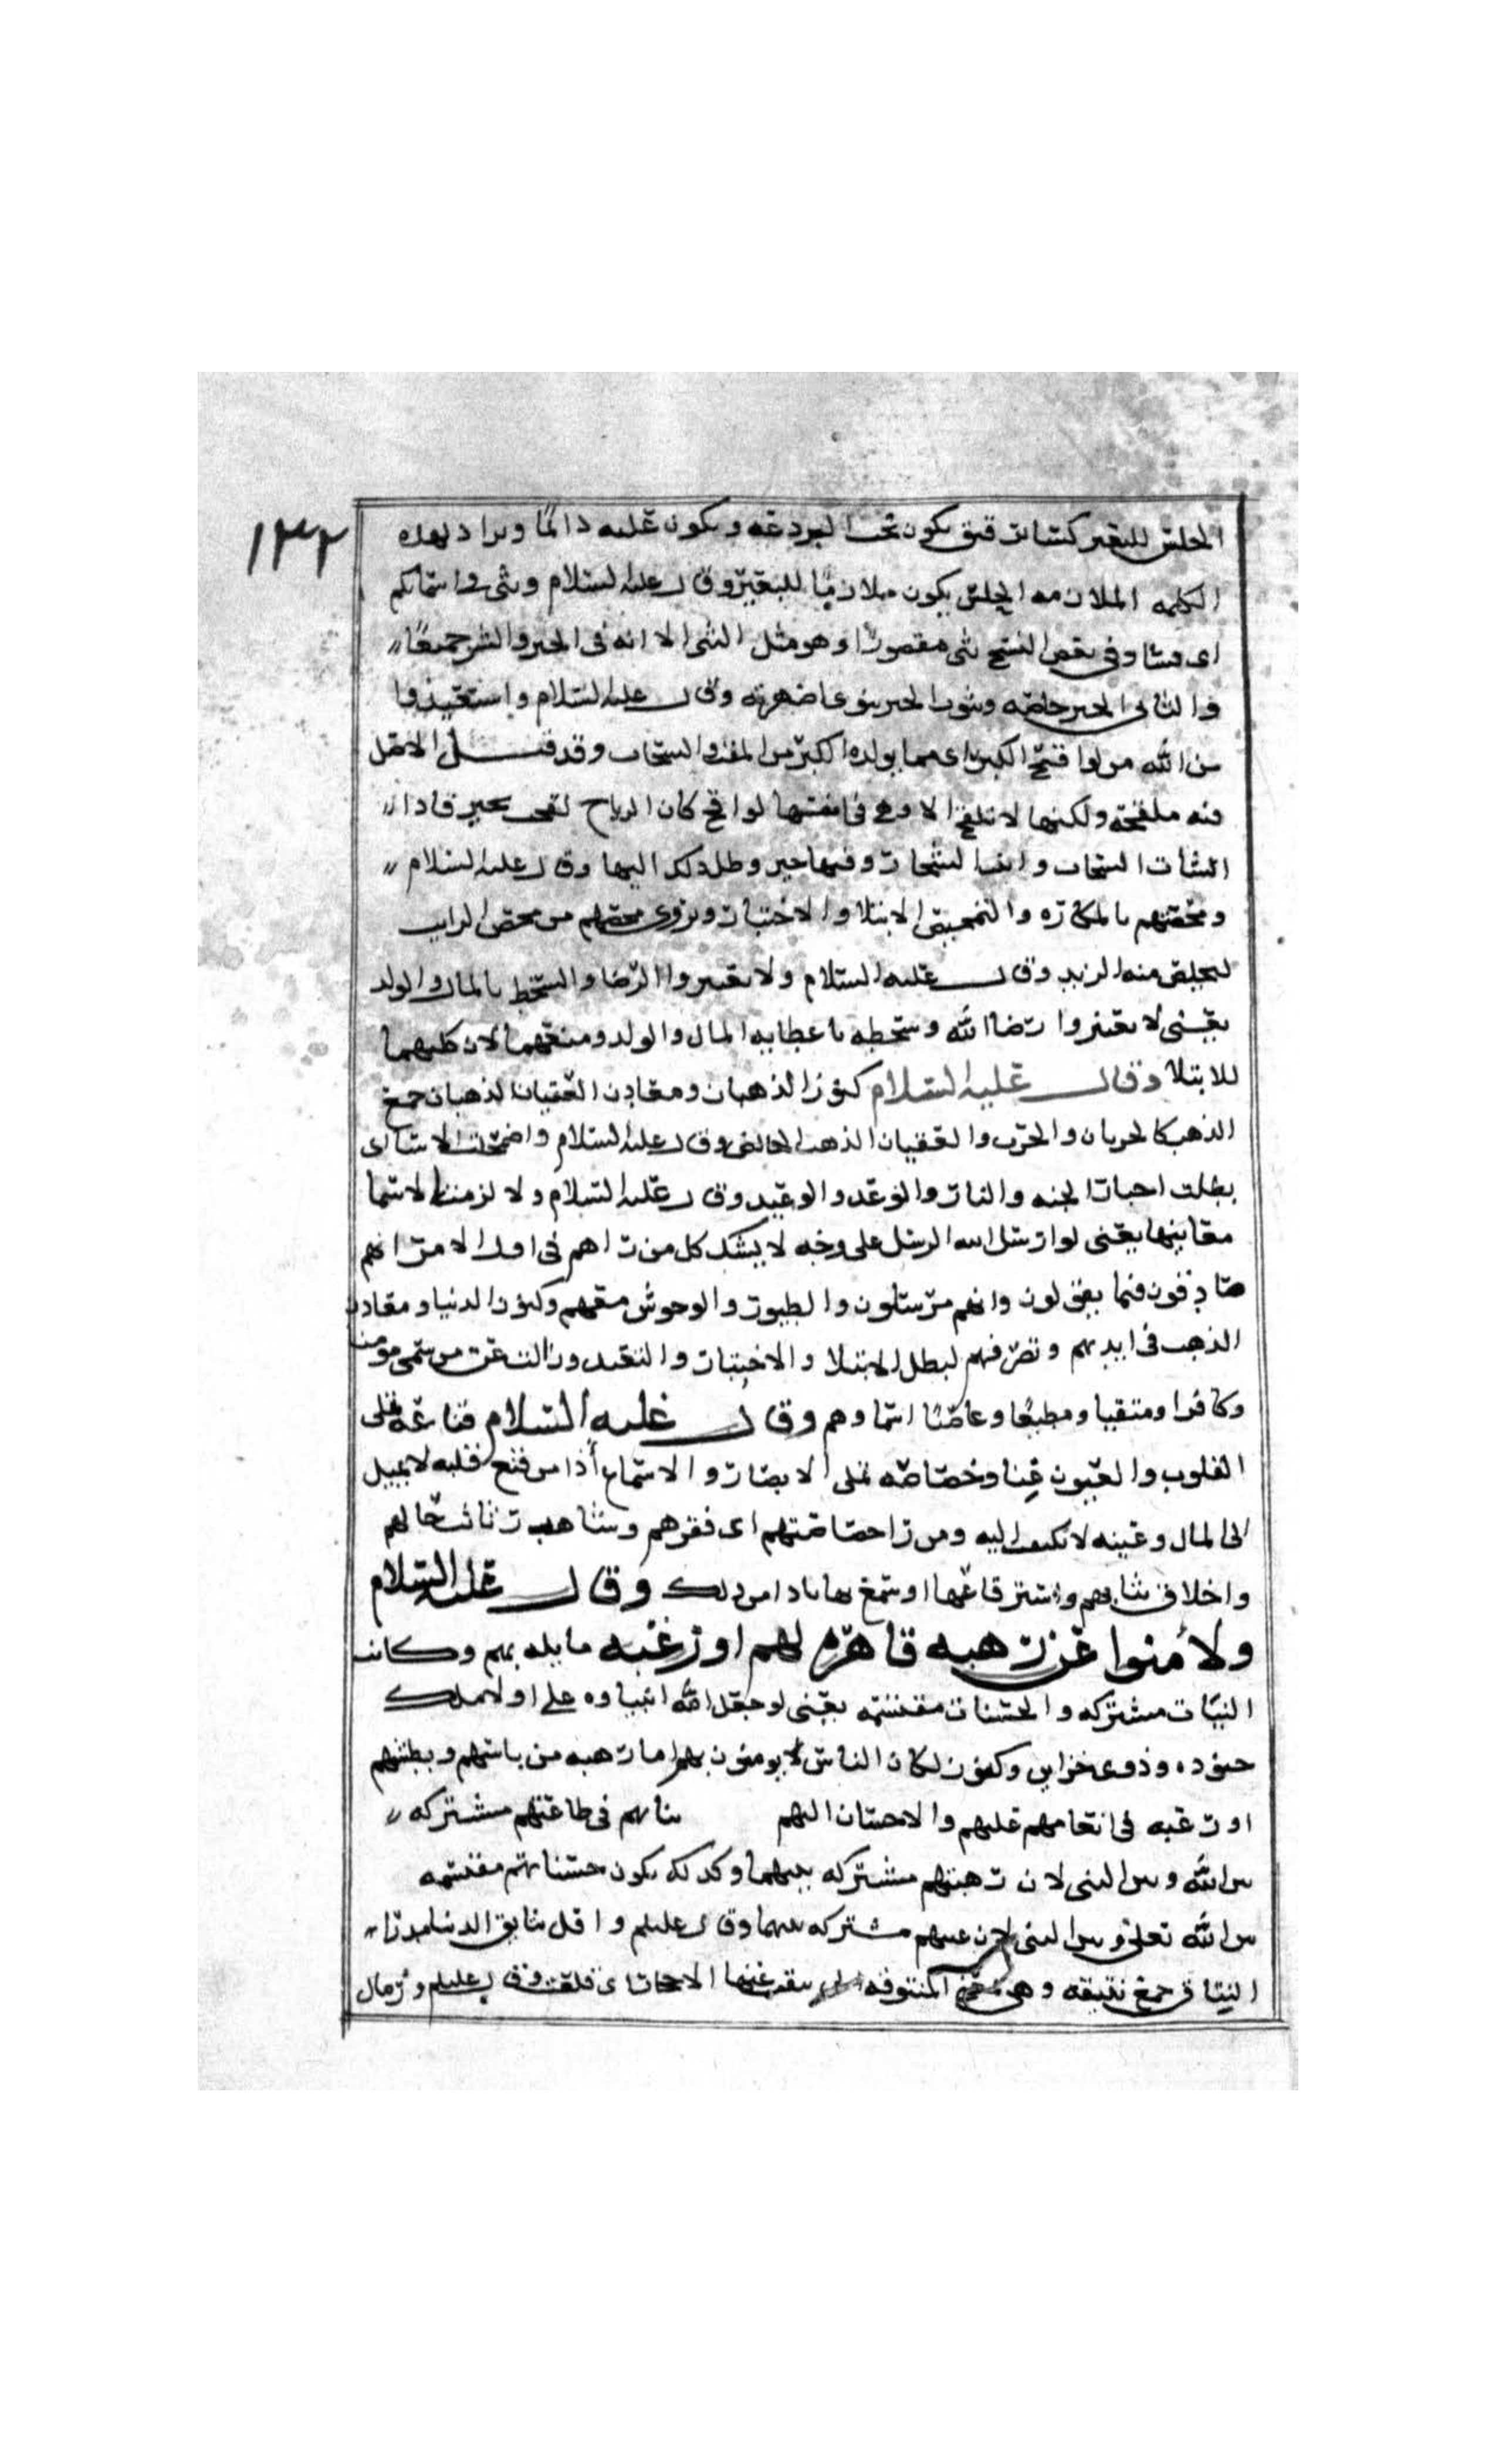 ١٣٢
الحلس للبعير كساء رقيق يكون تحت البردعه ويكون عليه دائما ويراد بهذه
الكلمه الملازمه الحلس يكون ملازما للبعير وقال عليه السلام وثنى واسمائكم
اى مساو فى بعض النسخ ثنى مقصورا وهو مثل الشى الا انه فى الخير والشر جميعا
والثانى الخير خاصه
من الله من لواقح الكبر اى مما يولده الكبر من المفت والسحاب وقد قيل الاصل
فيه ملقحه ولكنها لا تلقح الا وهى فى نفسها لواقح كان الرياح لقحت بخير فاذا
انشات السحاب وفيها خير وصل ذلك اليها وقال عليه السلام
ومخضهم بالمكاره والتمحيص الابتلا والاختبار ويروى محضهم من محض اللبن
ليخلص منه الزبد وقال عليه السلام ولا تعتبروا الرضا والسخط بالمال والولد
يعنى لا تعتبروا رضا الله وسخطه باعطايه المال والولد ومنعهما لان كليهما
للابتلا وقال عليه السلام كنوز الذهبان ومعادن العقيان الذهبان جمع
الذهب كالخربان والخرب والعقيان الذهب الخالص وقال عليه السلام واضمحلت الانبا اى
بطلت اخبار الجنه والنار والوعد والوعيد وقال عليه السلام ولا لزمت الاسما
معانيها يعنى لو ارسل الله الرسل على وجه لا يشك كل من راهم فى اول الامر انهم
صادقون فيما يقولون وانهم مرسلون والطيور والوحوش معهم وكنوز الدنيا ومعادن
الذهب فى ايديهم وتصرفهم لبطل الابتلا والاختبار والتعبد وزالت عن من سمى مومنا
وكافرا ومتقيا ومطيعا وعاصيا اسماوهم وقال عليه السلام قناعه تملى
القلوب والعيون غنا وخصاصه تملى الابصار والاسماع أذا من قنع قلبه لا يميل
الى المال وعينه لا تلتفت اليه ومن را خصاصتهم اى فقرهم وشاهد رثاثت حالهم
واخلاق ثيابهم واسترقاعها اوسمع بها تاذا من ذلك وقال عليه السلام
ولآمنوا عن رهبه قاهره لهم او رغبه مايله بهم وكانت
النيات مشتركه والحسنات مقتسمه يعنى لو جعل الله انبياوه على اولا ملك
جنوده وذوى خزاين وكنوز لكان الناس لا يومنون بهم اما رهبه من باسهم وبطشهم
او رغبه فى انعامهم عليهم والاحسان اليهم نياتهم فى طاعتهم مشتركه
بين الله وبين النبى لان رهبتهم مشتركه بينهما وكذلك يكون حسناتهم مقتسمه
بين الله تعلى وبين النبى لان رغبتهم مشتركه بينهما وقال عليلم واقل نتايق الدنيا مدرا
النتايق جمع نتيقه وهى المنتوقه الاحجار اى قلعت وقال عليلم ورمال